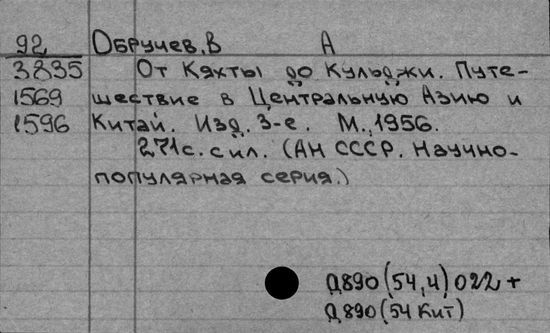 92 Обручев, В А
3835 От Кяхты до Кульджи. Путе-
1569 шествие в Центральную Азию и
1596 Китай. Изд. 3-е. М., 1956.
271с. с ил. (АН СССР. Научно-
популярная серия.)
Д890(54,4)022 +
Д890(54Кит)